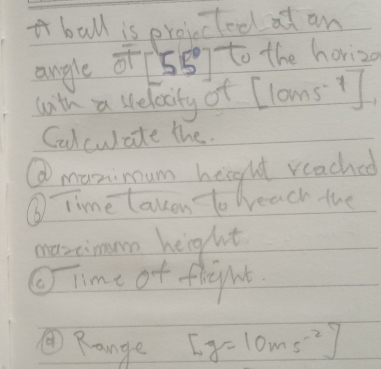 A ball is projected at an
angle of [55°] to the horizo
with a velocity of [10ms⁻¹],
Calculate the.
ⓐ maximum height reached
ⓑ Time taken to reach the
maximum height
ⓒ Time of flight.
ⓓ Range [g=10ms⁻²]